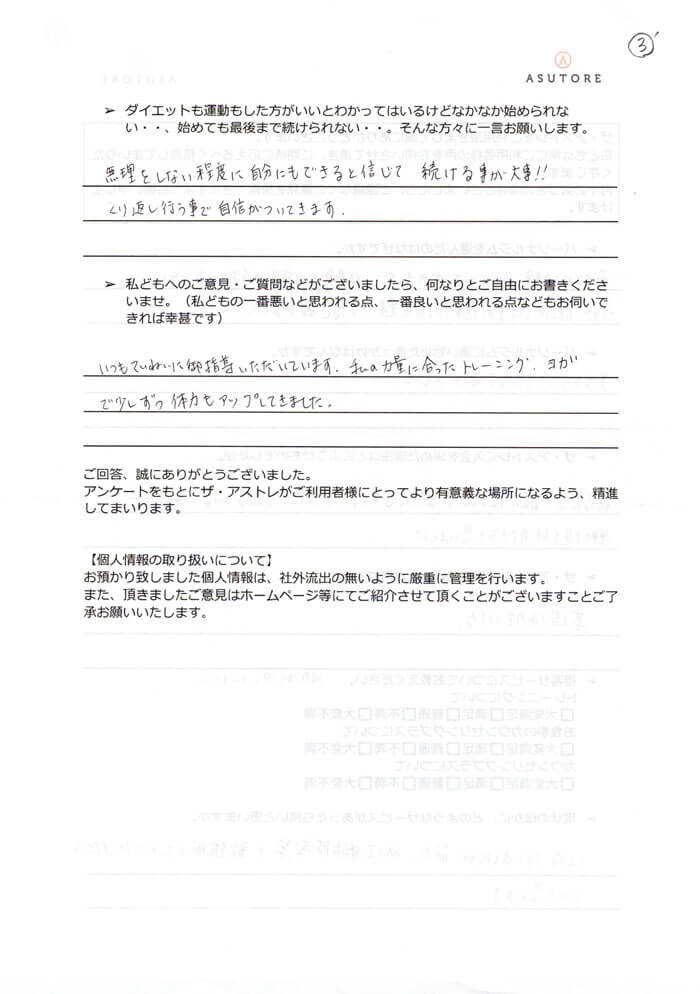 ③'
ASUTORE
➢ ダイエットも運動もした方がいいとわかってはいるけどなかなか始められな
い・・、始めても最後まで続けられない・・。そんな方々に一言お願いします。
無理をしない程度に自分にもできると信じて 続ける事が大事!!
くり返し行う事で自信がついてきます.
➢ 私どもへのご意見・ご質問などがございましたら、何なりとご自由にお書きくださ
いませ。（私どもの一番悪いと思われる点、一番良いと思われる点などもお伺いで
きれば幸甚です）
いつもていねいに御指導いただいています. 私の力量に合ったトレーニング. ヨガ
で少しずつ 体力もアップしてきました.
ご回答、誠にありがとうございました。
アンケートをもとにザ・アストレがご利用者様にとってより有意義な場所になるよう、精進
してまいります。
【個人情報の取り扱いについて】
お預かり致しました個人情報は、社外流出の無いように厳重に管理を行います。
また、頂きましたご意見はホームページ等にてご紹介させて頂くことがございますことご了
承お願いいたします。